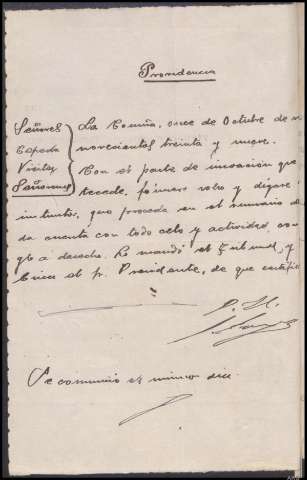 Providencia
Señores
Cepeda
Vieites
La Coruña, once de Octubre de m
novecientos treinta y nueve.
Con el parte de incoación que
tecede, fórmese rollo y dígase
instructor, que proceda en el sumario de
da cuenta con todo celo y actividad, con
glo a derecho. Lo mandó el Tribunal, y
brica el Sr. Presidente, de que certifico
Se comunicó el mismo día